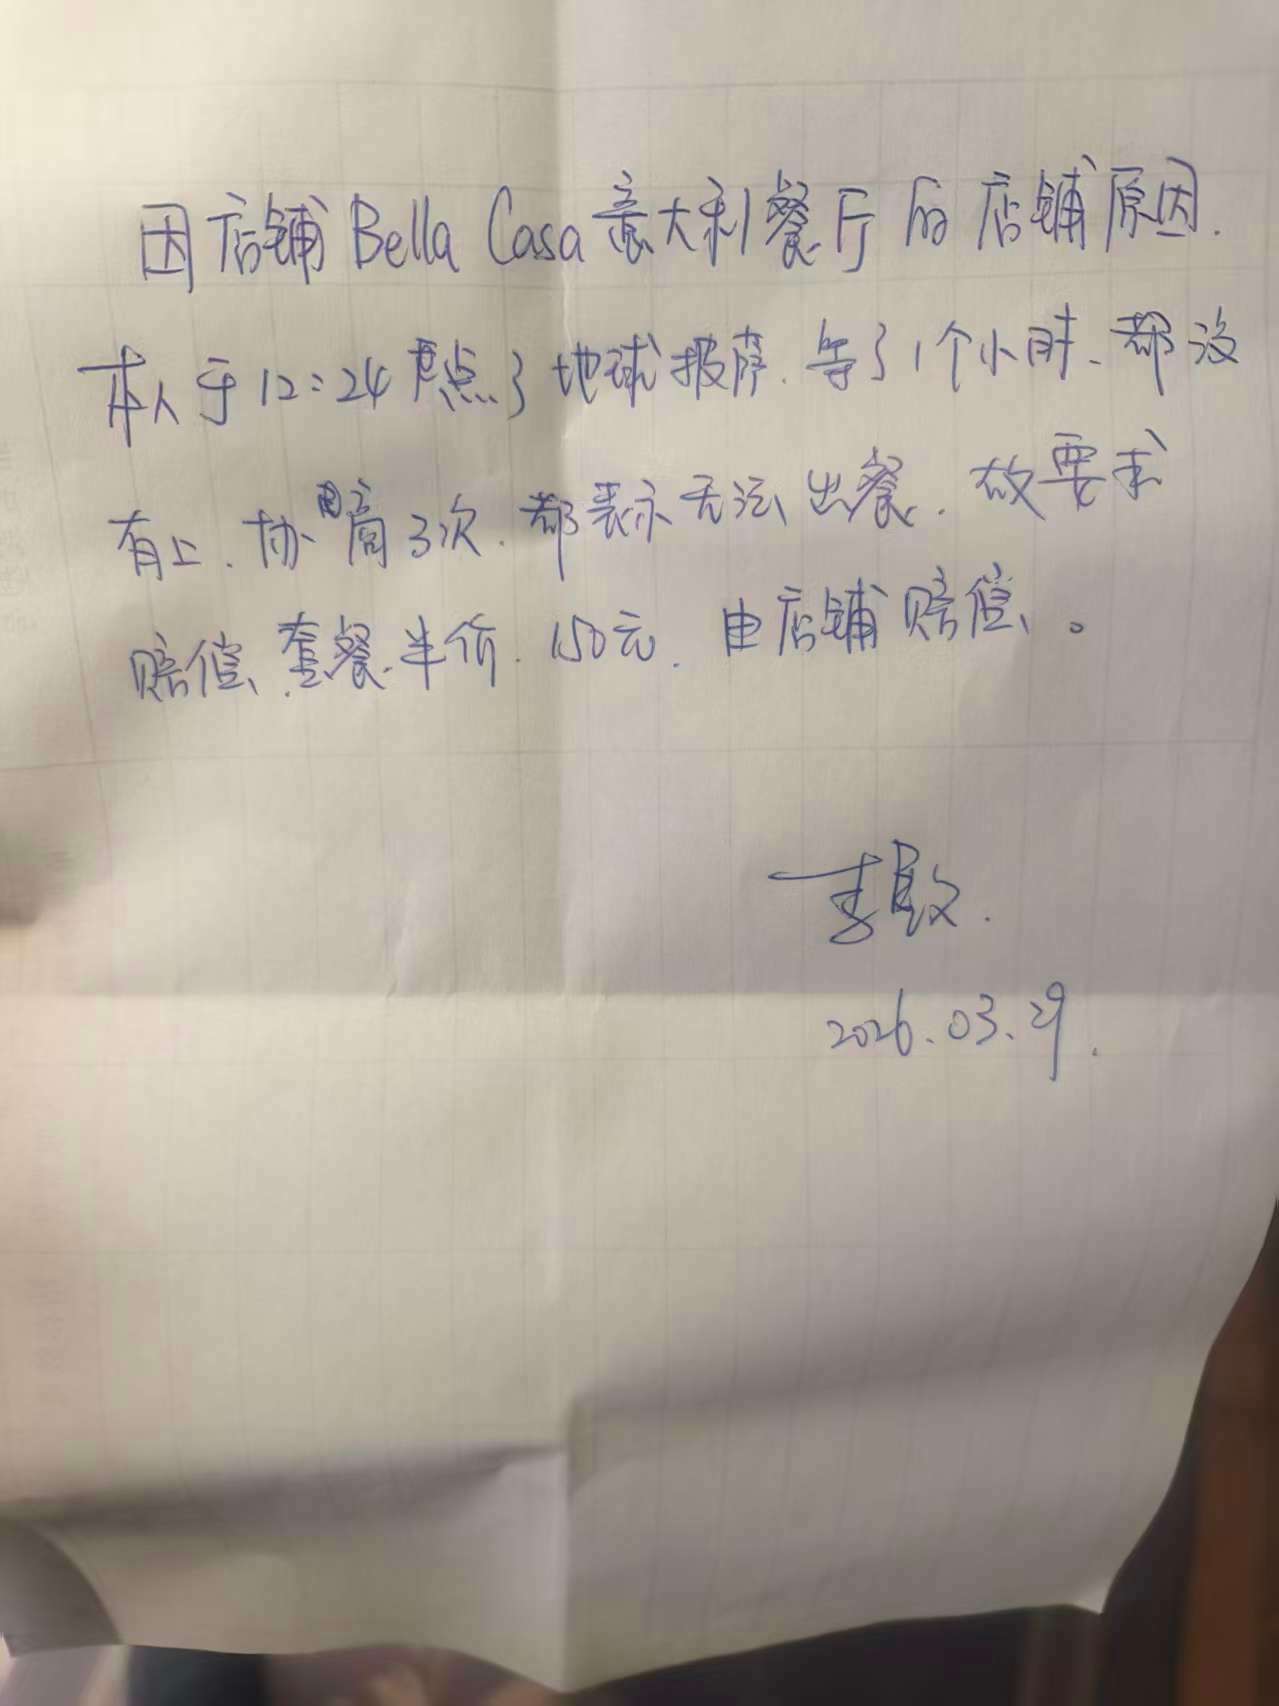 因店铺 Bella Casa 意大利餐厅的店铺原因.
本人于12:24点了地球披萨.等了1个小时、都没
有上.协商3次.都表示无法出餐.故要求
赔偿.套餐.半价.150元.由店铺赔偿。
2026.03.29.